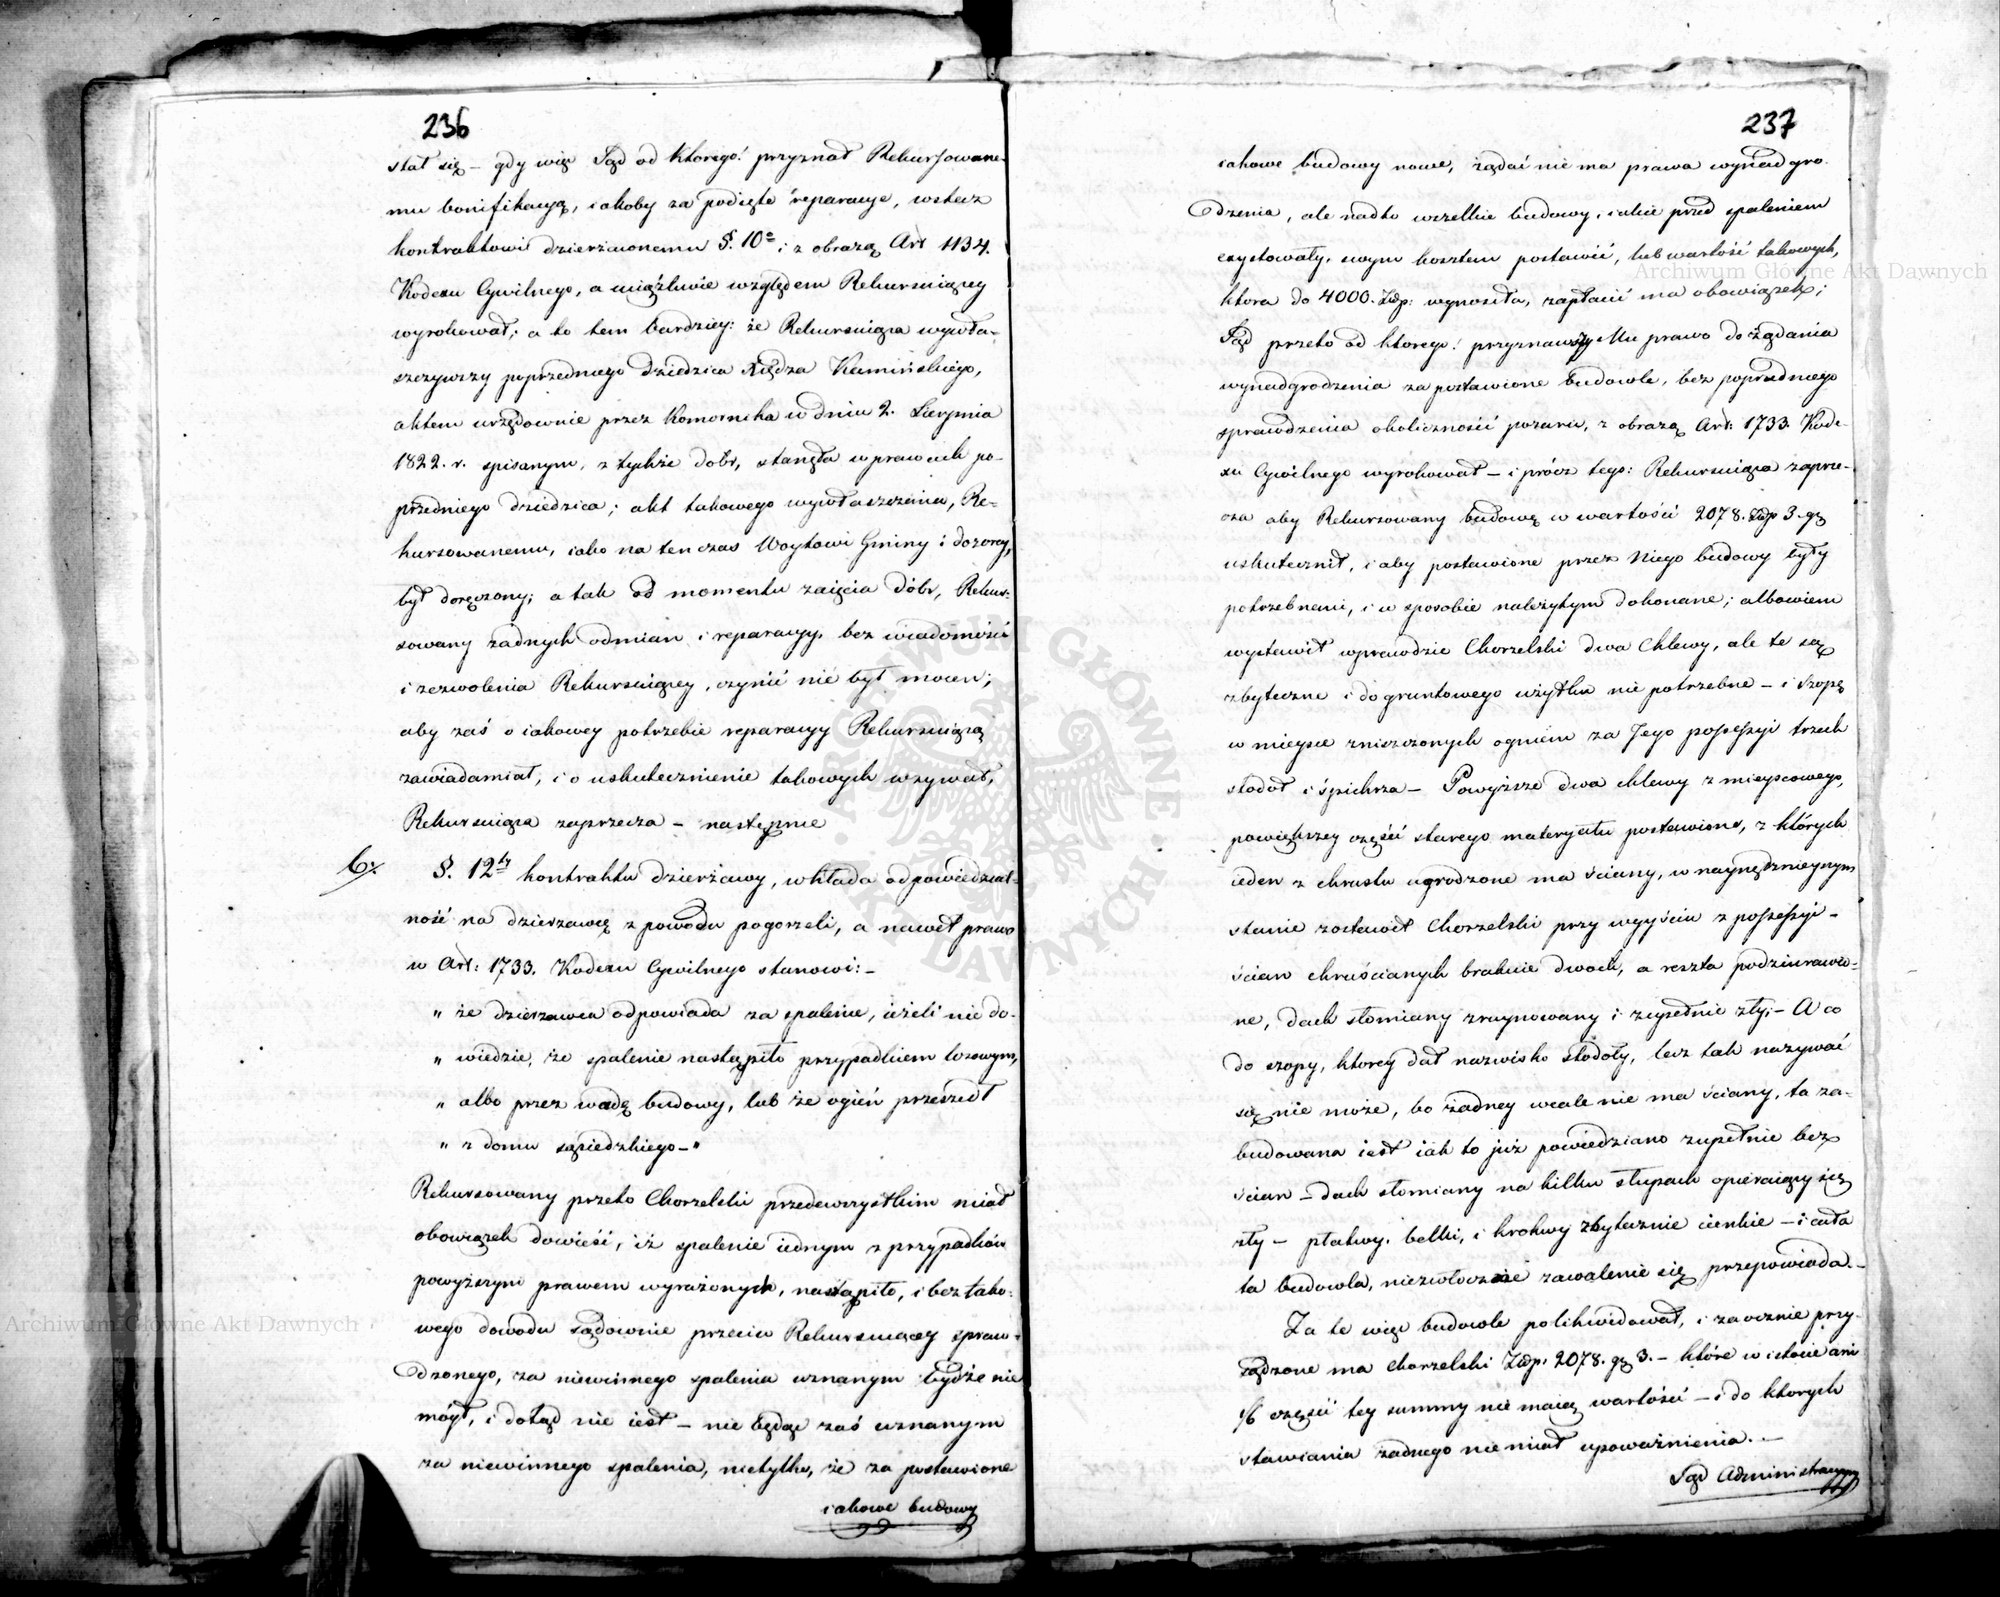 236
stał się – gdy więc Sąd od którego! przyznał Rekursowane-
mu bonifikacyą, iakoby za podięte reparacye, wstecz
kontraktowi dzierżawnemu §. 10º i z obrazą Art 1134.
Kodexu Cywilnego, a uciążliwie względem Rekursuiącey
wyrokował; a to tem bardziey: że Rekursuiąca wywła-
szczywszy poprzedniego dziedzica Xiędza Kamińskiego,
aktem urzędownie przez Komornika w dniu 2. Sierpnia
1822. r. spisanym, z tychże dobr, stanęła w prawach po-
przedniego dziedzica; akt takowego wywłaszczenia, Re-
kursowanemu, iako na ten czas Woytowi Gminy i dozorcy,
był doręczony; a tak od momentu zaięcia dóbr, Rekur-
sowany żadnych odmian i reparacyy, bez wiadomości
i zezwolenia Rekursuiącey, czynić nie był mocen;
aby zaś o iakowey potrzebie reparacyy Rekursuiącą
zawiadamiał, i o uskutecznienie takowych wzywał,
Rekursuiąca zaprzecza – następnie
6. §. 12ty kontraktu dzierżawy, wkłada odpowiedzial-
ność na dzierżawcę z powodu pogorzeli, a nawet prawo
w Art: 1733. Kodexu Cywilnego stanowi: –
„ że dzierzawca odpowiada za spalenie, ieżeli nie do-
„ wiedzie, że spalenie nastąpiło przypadkiem losowym,
„ albo przez wadę budowy, lub że ogień przeszedł
„ z domu sąsiedzkiego – "
Rekursowany przeto Chorzelski przedewszystkim miał
obowiązek dowieść, iż spalenie iednym z przypadków
powyższym prawem wyrażonych, nastąpiło, i bez tako-
wego dowodu sądownie przeciw Rekursuiącey spraw-
dzonego, za niewinnego spalenia uznanym bydź nie
mógł, i dotąd nie iest – nie będąc zaś uznanym
za niewinnego spalenia, nietylko, że za postawione
iakowe budowy
237
iakowe budowy nowe, żądać nie ma prawa wynadgro-
dzenia, ale nadto wszelkie budowy, iakie przed spaleniem
exystowały, swym kosztem postawić, lub wartość takowych,
ktora do 4000. Złp: wynosiła, zapłacić ma obowiązek;
Sąd przeto od ktorego! przyznawszy Mu prawo do żądania
wynadgrodzenia za postawione budowle, bez poprzedniego
sprawdzenia okoliczności pożaru, z obrazą Art: 1733. Kode-
xu Cywilnego wyrokował – i prócz tego: Rekursuiąca zaprze-
cza aby Rekursowany budowę w wartości 2078. Złp 3. gr
uskutecznił, i aby postawione przez Niego budowy były
potrzebnemi, i w sposobie należytym dokonane; albowiem
wystawił wprawdzie Chorzelski dwa Chlewy, ale te są
zbyteczne i do gruntowego użytku nie potrzebne – i szopę
w mieysce zniszczonych ogniem za Jego possessyi trzech
stodoł i śpichrza – Powyższe dwa chlewy z mieyscowego,
powiększey części starego materyału postawione, z których
ieden z chrustu ugrodzone ma ściany, w naynędznieyszym
stanie zostawił Chorzelski przy wyyściu z possessyi –
ścian chruścianych brakuie dwoch, a reszta podziurawio-
ne, dach słomiany zruynowany i zupełnie zły; – A co
do szopy, ktorey dał nazwisko stodoły, lecz tak nazywać
się nie może, bo żadney wcale nie ma ściany, ta za-
budowana iest iak to już powiedziano zupełnie bez
ścian – dach słomiany na kilku słupach opieraiący się
zły – płatwy, belki, i krokwy zbytecznie cienkie – i cała
ta budowla, niezwłocznie zawalenie się przepowiada. –
Za te więc budowle polikwidował, i zaocznie przy-
sądzone ma Chorzelski Złp. 2078. gr 3. – które w istocie ani
części tey summy nie maią wartości – i do ktorych
stawiania żadnego nie miał upoważnienia. –
Sąd Administracyiny
Archiwum Główne Akt Dawnych
Archiwum Główne Akt Dawnych
ARCHIWUM GŁÓWNE AKT DAWNYCH